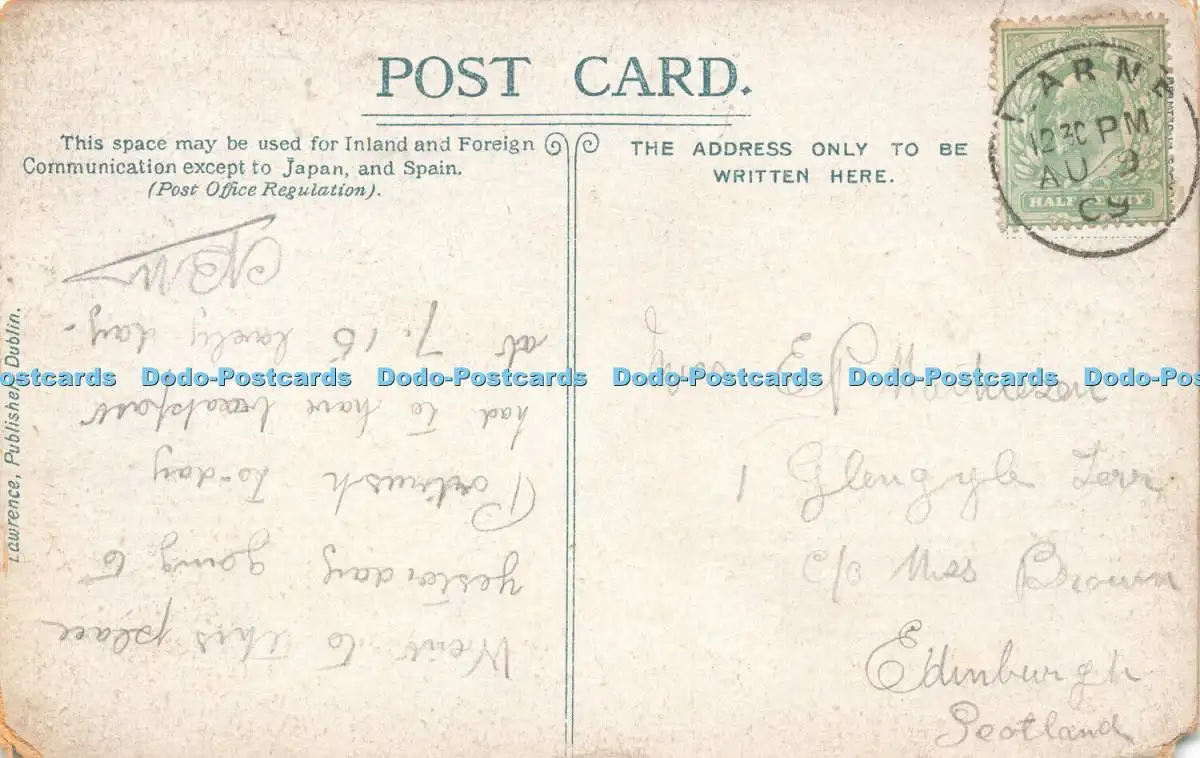 POST CARD.
This space may be used for Inland and Foreign
Communication except to Japan, and Spain.
(Post Office Regulation).
THE ADDRESS ONLY TO BE
WRITTEN HERE.
LARNE
12 30 PM
AU 9
09
HALFPENNY
Lawrence, Publisher, Dublin.
Went to this place
yesterday going to
Portrush to-day
had to have breakfast
at 7.15 lovely day.
Dodo-Postcards Dodo-Postcards Dodo-Postcards Dodo-Postcards Dodo-Postcards
E P Mathieson
1 Glengyle Terr
c/o Miss Brown
Edinburgh
Scotland